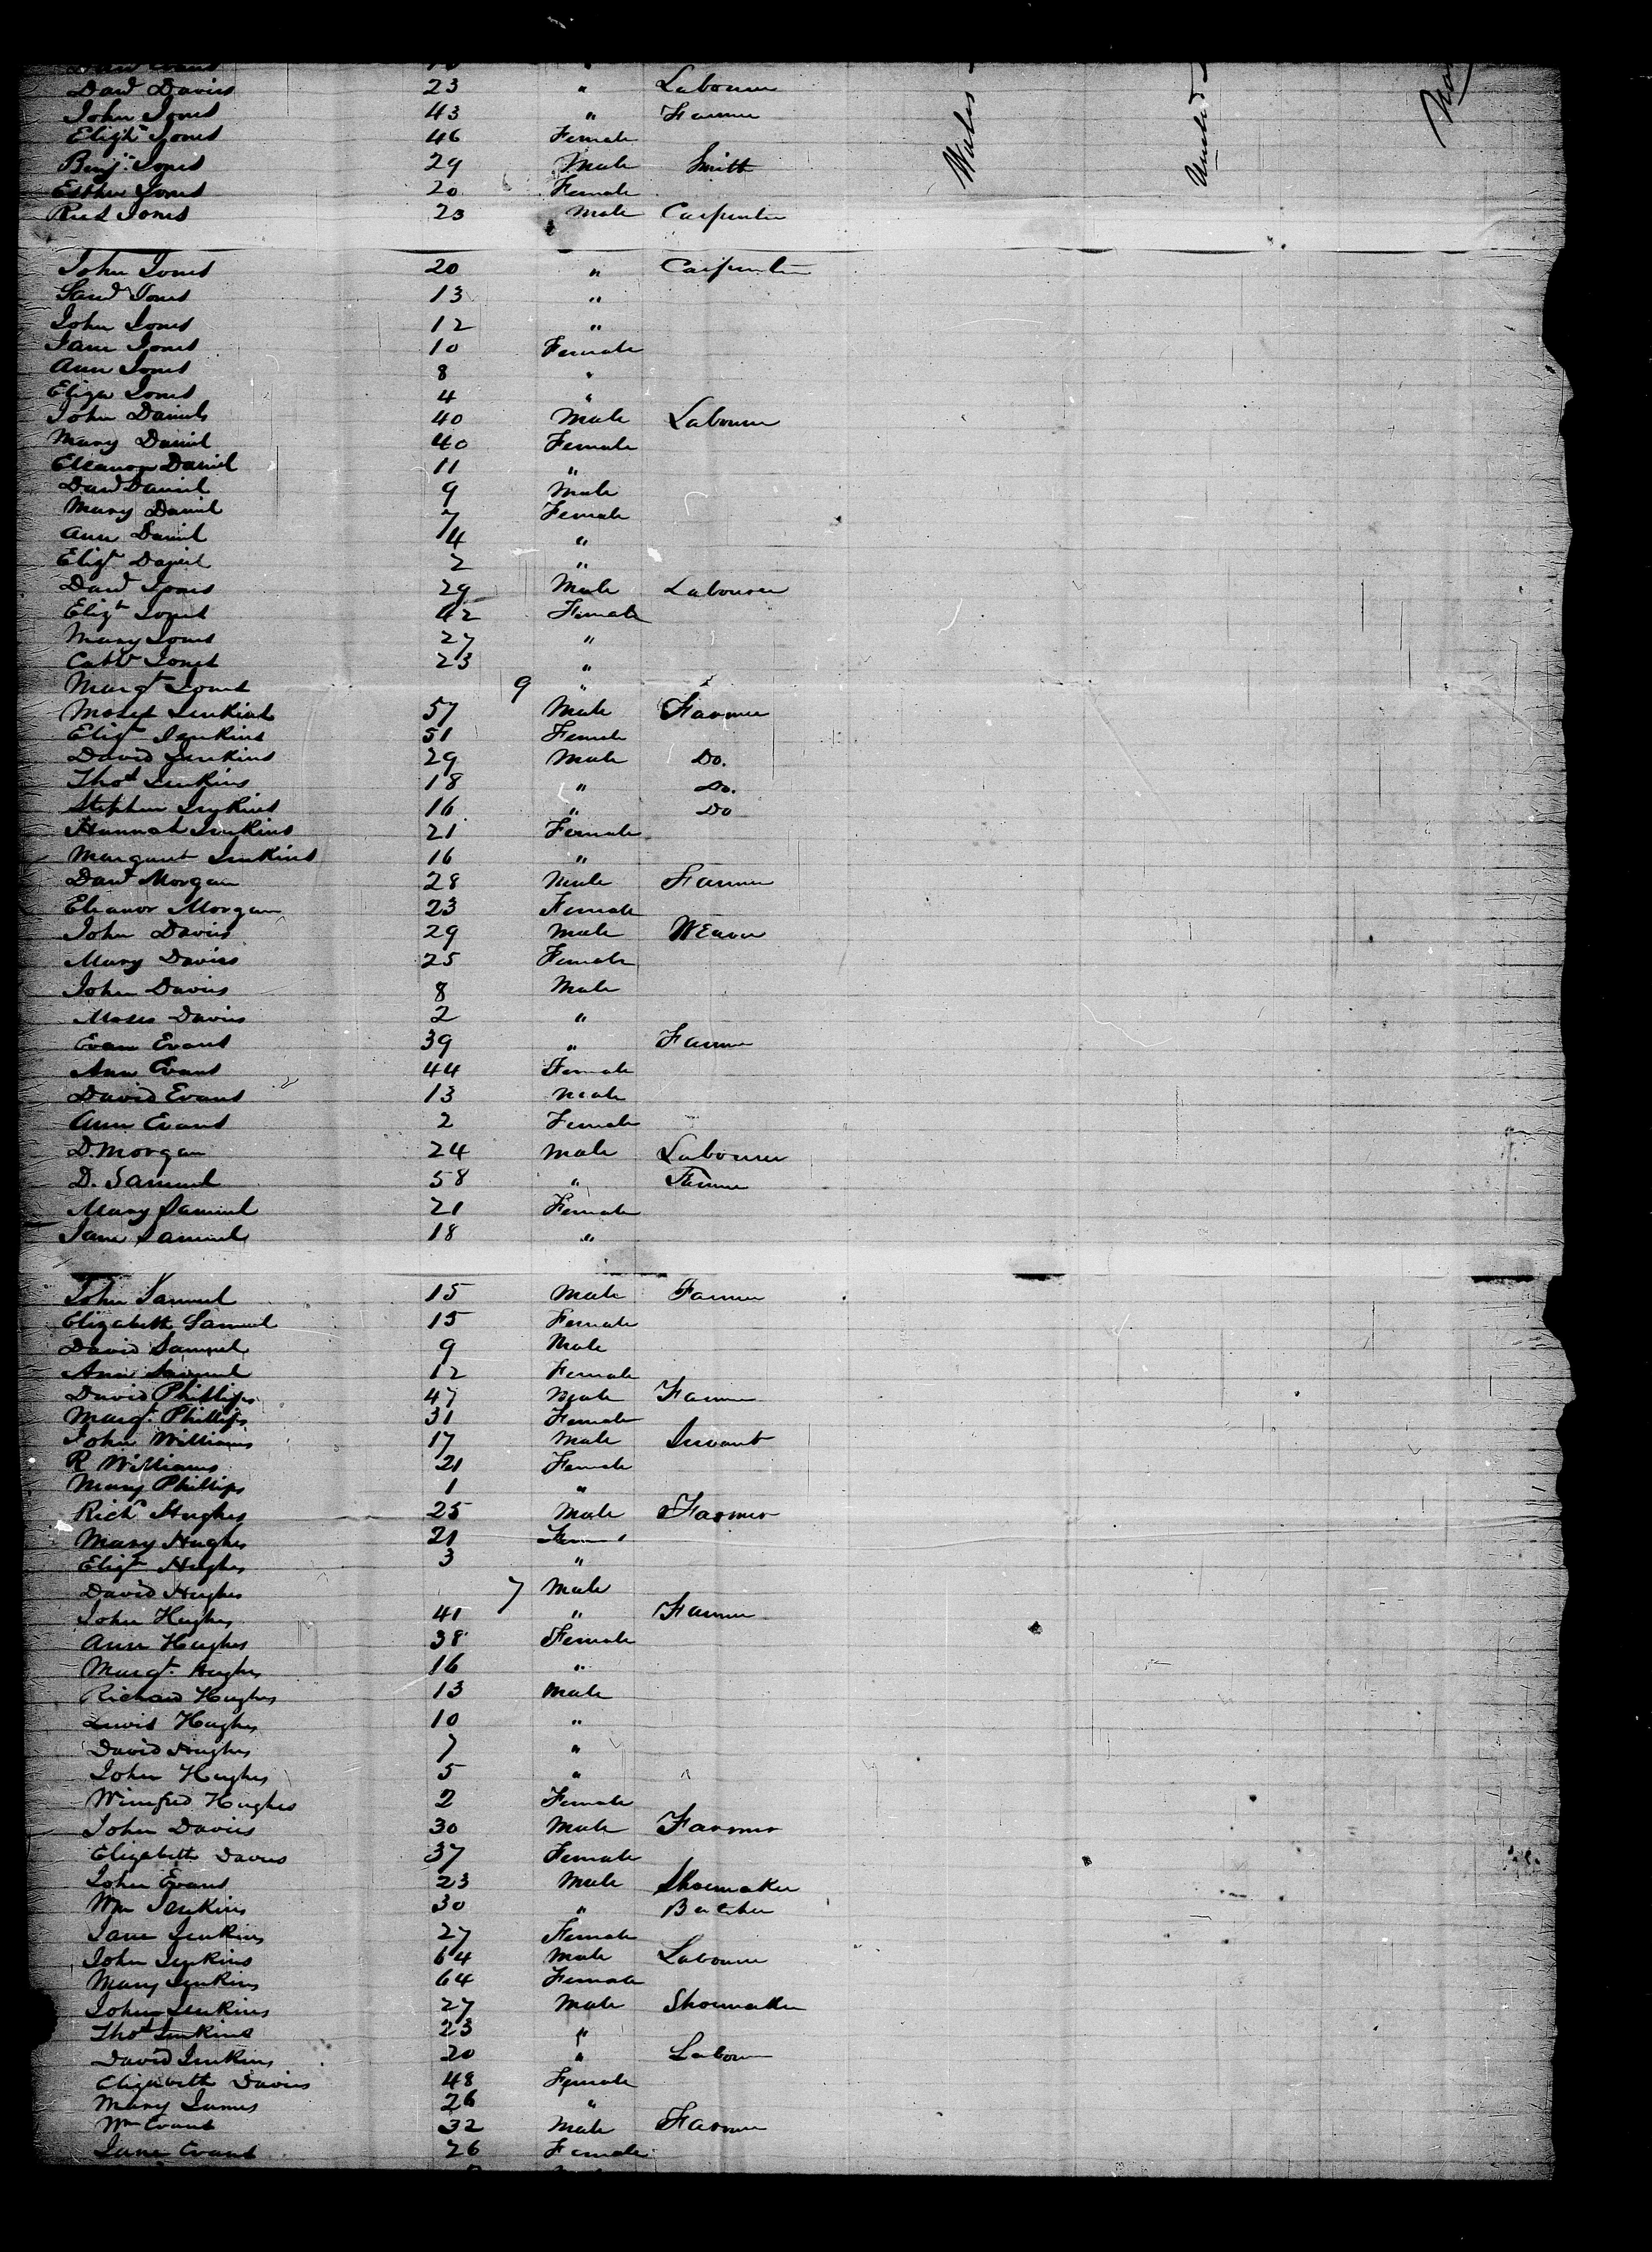 Davd Davies 23 " Labourer
John Jones 43 " Farmer Wales United
Elizth Jones 46 Female
Benjn Jones 29 Male Smith
Esther Jones 20 Female
Richd Jones 23 Male Carpenter
John Jones 20 " Carpenter
Jones 13 "
John Jones 12 "
Jane Jones 10 Female
Ann Jones 8 "
Eliza Jones 4 "
John Daniels 40 Male Labourer
Mary Daniel 40 Female
Eleanor Daniel 11 "
Davd Daniel 9 Male
Mary Daniel 7 Female
Ann Daniel 4 "
Elizt Daniel 2 "
Davd Jones 29 Male Labourer
Elizt Jones 42 Female
Mary Jones 27 "
Cath Jones 23 "
Margt Jones 9 "
Moses Jenkins 57 Male Farmer
Elizt Jenkins 51 Female
David Jenkins 29 Male Do.
Thos Jenkins 18 " Do.
Stephen Jenkins 16 " Do
Hannah Jenkins 21 Female
Margaret Jenkins 16 "
Davd Morgan 28 Male Farmer
Eleanor Morgan 23 Female
John Davies 29 Male Weaver
Mary Davies 25 Female
John Davies 8 Male
Moses Davies 2 "
Evan Evans 39 " Farmer
Ann Evans 44 Female
David Evans 13 Male
Ann Evans 2 Female
D. Morgan 24 Male Labourer
D. Samuel 58 " Farmer
Mary Samuel 21 Female
Jane Samuel 18 "
John Samuel 15 Male Farmer
Elizabeth Samuel 15 Female
David Samuel 9 Male
Ann Samuel 12 Female
David Phillips 47 Male Farmer
Margt. Phillips 31 Female
John Williams 17 Male Servant
R Williams 21 Female
Mary Phillips 1 "
Richd Hughes 25 Male Farmer
Mary Hughes 21 Female
Elizt Hughes 3 "
David Hughes 7 Male
John Hughes 41 " Farmer
Ann Hughes 38 Female
Margt. Hughes 16 "
Richard Hughes 13 Male
Lewis Hughes 10 "
David Hughes 7 "
John Hughes 5 "
Winifred Hughes 2 Female
John Davies 30 Male Farmer
Elizabeth Davies 37 Female
John Evans 23 Male Shoemaker
Wm Jenkins 30 " Butcher
Jane Jenkins 27 Female
John Jenkins 64 Male Labourer
Mary Jenkins 64 Female
John Jenkins 27 Male Shoemaker
Thos Jenkins 23 "
David Jenkins 20 " Labour
Elizabeth Davies 48 Female
Mary James 26 "
Wm Evans 32 Male Farmer
Jane Evans 26 Female